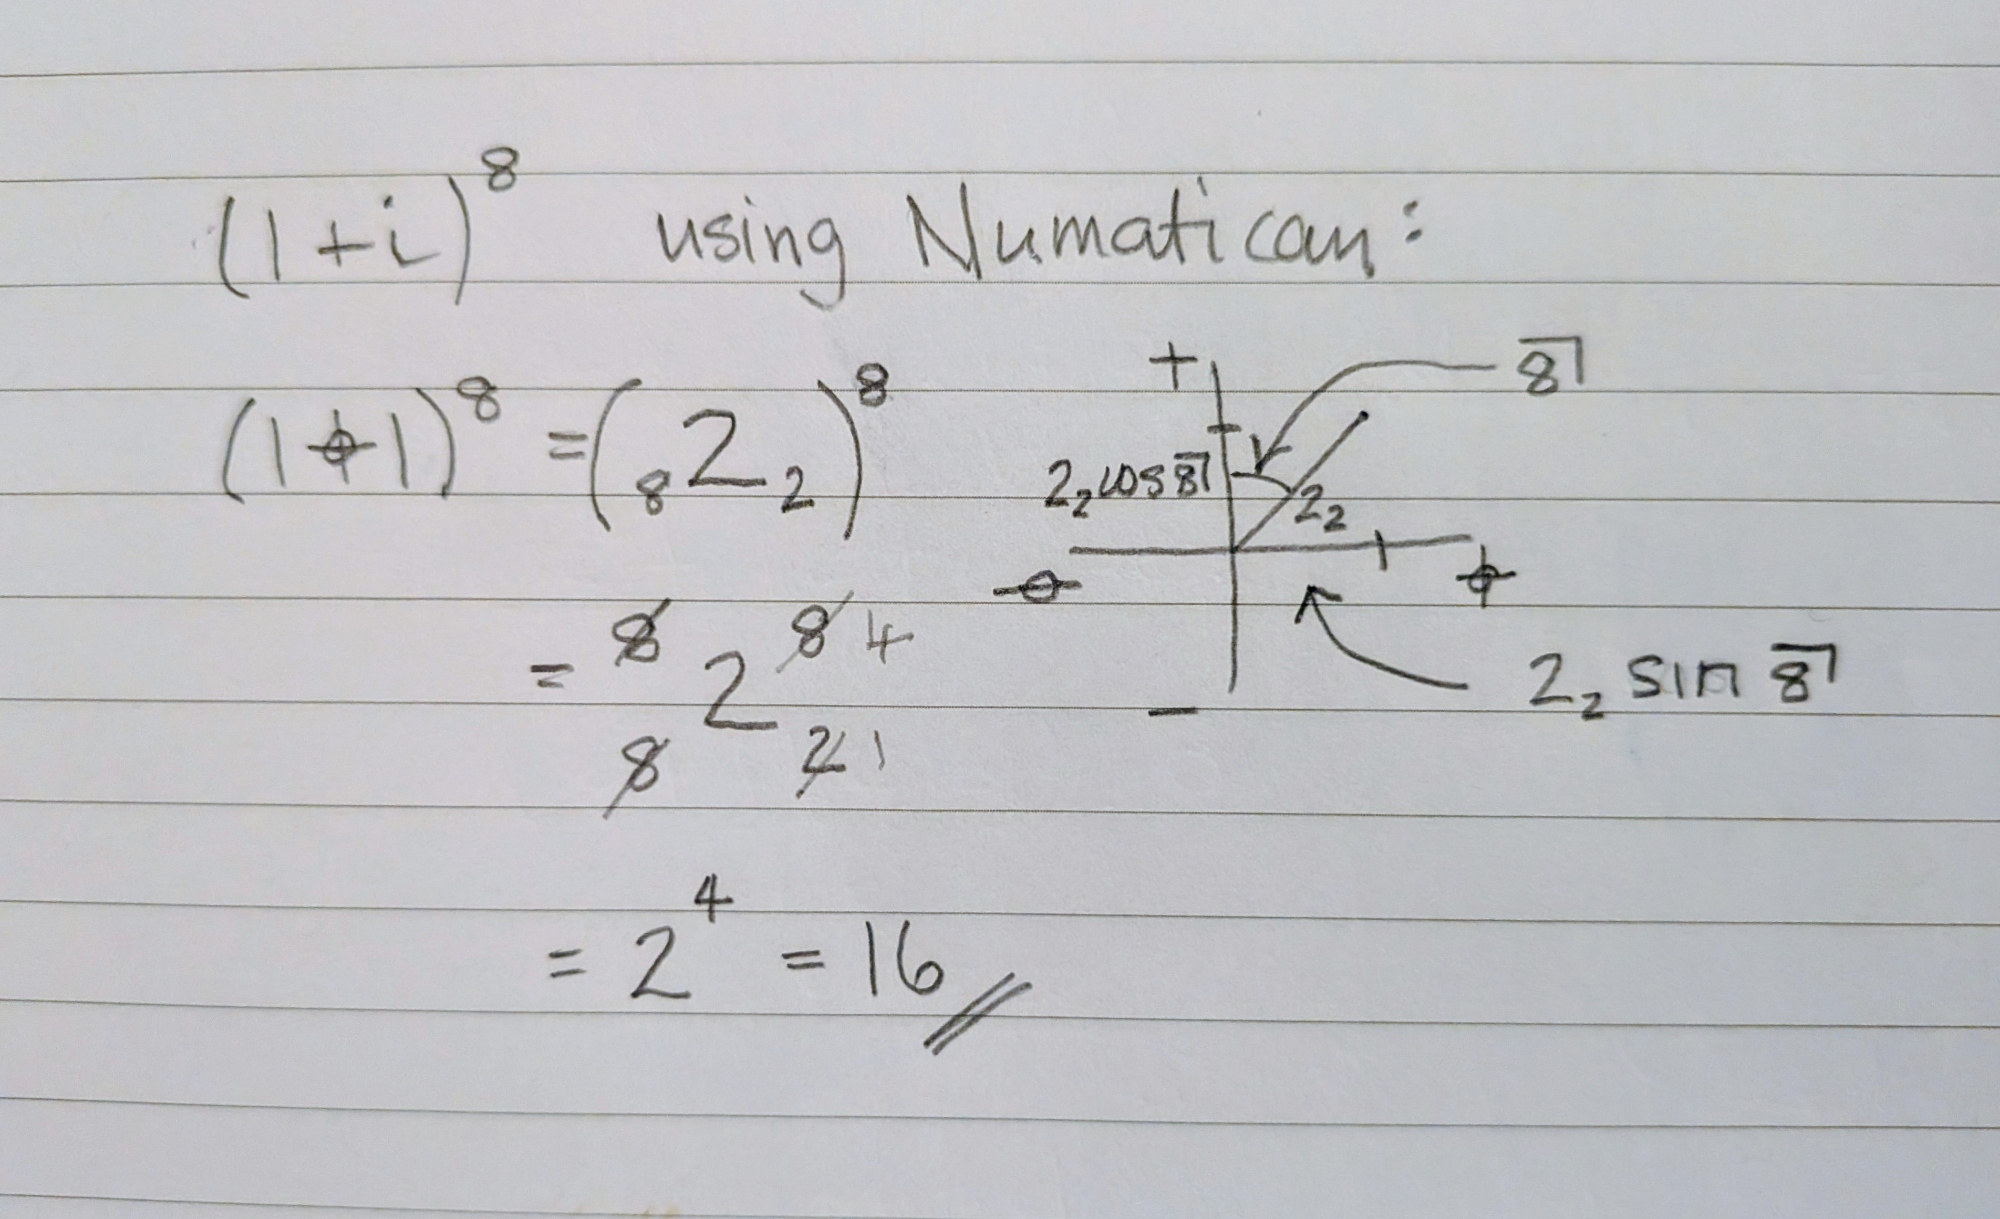 (1+i)⁸ using Numatican:
(1⌽1)⁸ = (₈2₂)⁸
= ⁸₈2⁸₂ 4 1
= 2⁴ = 16
+
8̅|
2₂cos8̅|
2₂
⦵ ⌽
2₂ sin 8̅|
−